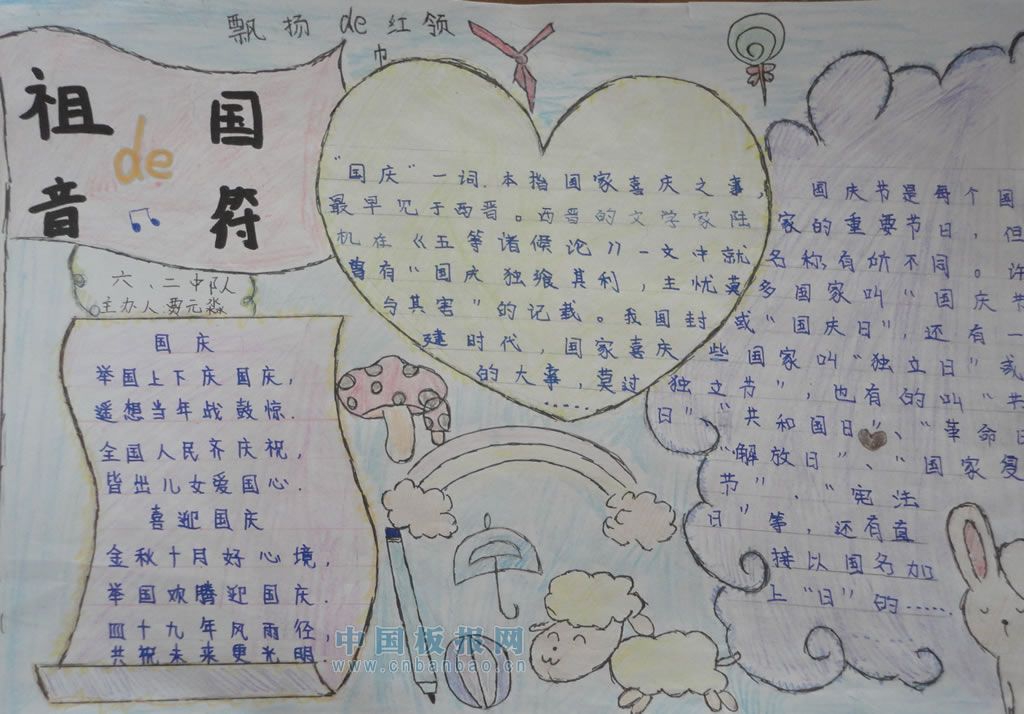 飘扬de红领
巾
祖国
de
音符
六、二中队
主办人:贾元淼
国庆
举国上下庆国庆,
遥想当年战鼓惊.
全国人民齐庆祝,
皆出儿女爱国心.
喜迎国庆
金秋十月好心境,
举国欢腾迎国庆.
四十九年风雨径,
共祝未来更光明
“国庆”一词.本指国家喜庆之事,
最早见于西晋。西晋的文学家陆
机在《五等诸候论》一文中就
曾有“国庆独飨其利,主忧莫
与其害”的记载。我国封
建时代,国家喜庆
的大事,莫过
......
国庆节是每个国
家的重要节日,但
名称有所不同。许
多国家叫“国庆节
或“国庆日”,还有一
些国家叫“独立日”或
“独立节”;也有的叫“共
日”“共和国日”、“革命日
“解放日”、“国家复
节”、“宪法
日”等,还有直
接以国名加
上“日”的......
中国板报网
www.cnbanbao.cn